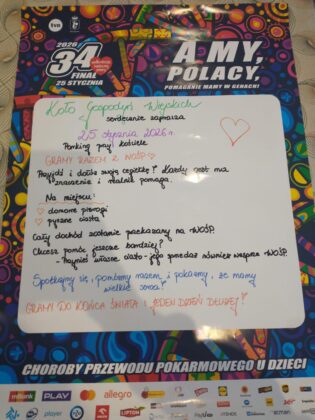 tvn
2026
34
FINAŁ
25 STYCZNIA
A MY,
POLACY,
POMAGANIE MAMY W GENACH!
Koło Gospodyń Wiejskich
serdecznie zaprasza
25 stycznia 2026 r.
Parking przy kościele
GRAMY RAZEM Z WOŚP
Przyjdź i dołóż swoją cegiełkę! Każdy gest ma
znaczenie i realnie pomaga.
Na miejscu:
domowe pierogi
pyszne ciasta
Cały dochód zostanie przekazany na WOŚP.
Chcesz pomóc jeszcze bardziej?
- Przynieś własne ciasto - jego sprzedaż również wesprze WOŚP
Spotkajmy się, pomóżmy razem i pokażmy, że mamy
wielkie serca!
GRAMY DO KOŃCA ŚWIATA I JEDEN DZIEŃ DŁUŻEJ!
CHOROBY PRZEWODU POKARMOWEGO U DZIECI
mBank PLAY allegro
player LIPTON ORLEN